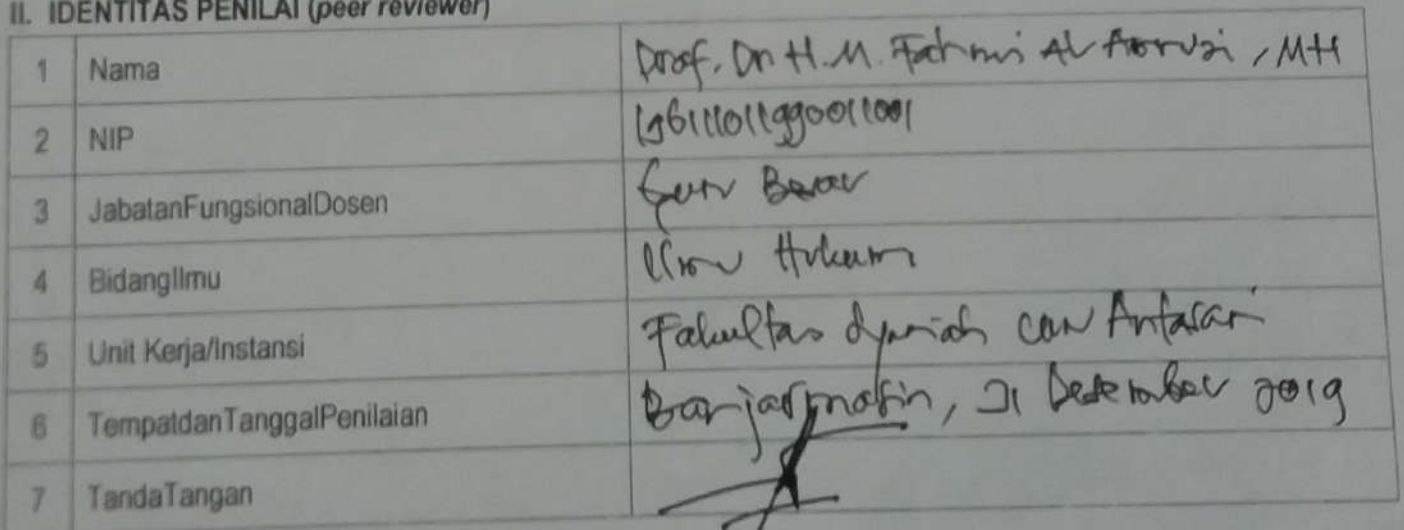 II. IDENTITAS PENILAI (peer reviewer)
1 Nama Prof. Dr. H. M. Fahmi Al Amruzi, MH
2 NIP
3 JabatanFungsionalDosen Guru Besar
4 BidangIlmu Ilmu Hukum
5 Unit Kerja/Instansi Fakultas Syariah UIN Antasari
6 TempatdanTanggalPenilaian Banjarmasin, Desember 2019
7 TandaTangan